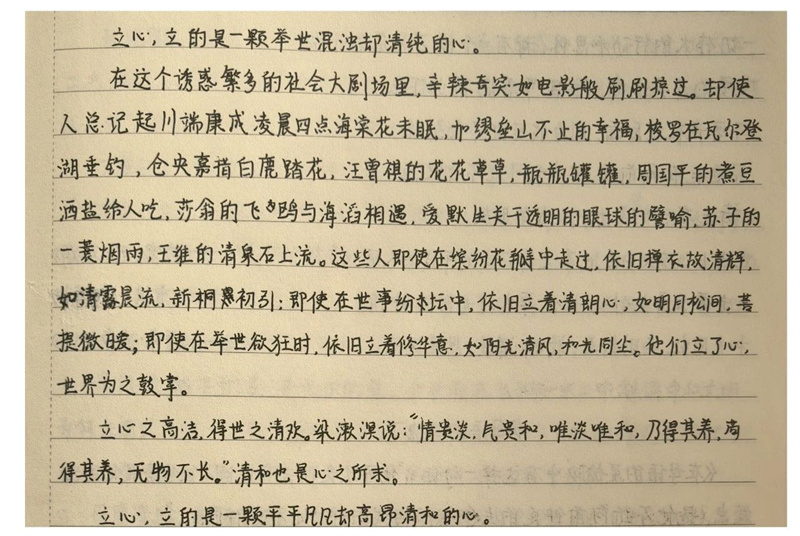 立心，立的是一颗举世混浊却清纯的心。
在这个诱惑繁多的社会大剧场里，辛辣奇突如电影般刷刷掠过。却使
人总记起川端康成凌晨四点海棠花未眠，加缪垒山不止的幸福，梭罗在瓦尔登
湖垂钓，仓央嘉措白鹿踏花，汪曾祺的花花草草，瓶瓶罐罐，周国平的煮豆
洒盐给人吃，莎翁的飞鸥与海滔相遇，爱默生关于透明的眼球的譬喻，苏子的
一蓑烟雨，王维的清泉石上流。这些人即使在缤纷花瓣中走过，依旧掸衣故清辉，
如清露晨流，新桐初引；即使在世事纷坛中，依旧立着清朗心，如明月松间，菩
提微暖；即使在举世欲狂时，依旧立着修华意，如阳光清风，和光同尘。他们立了心，
世界为之敦实。
立心之高洁，得世之清欢。梁漱溟说："情贵淡，气贵和，唯淡唯和，乃得其养，尚
得其养，无物不长。"清和也是心之所求。
立心，立的是一颗平平凡凡却高昂清和的心。